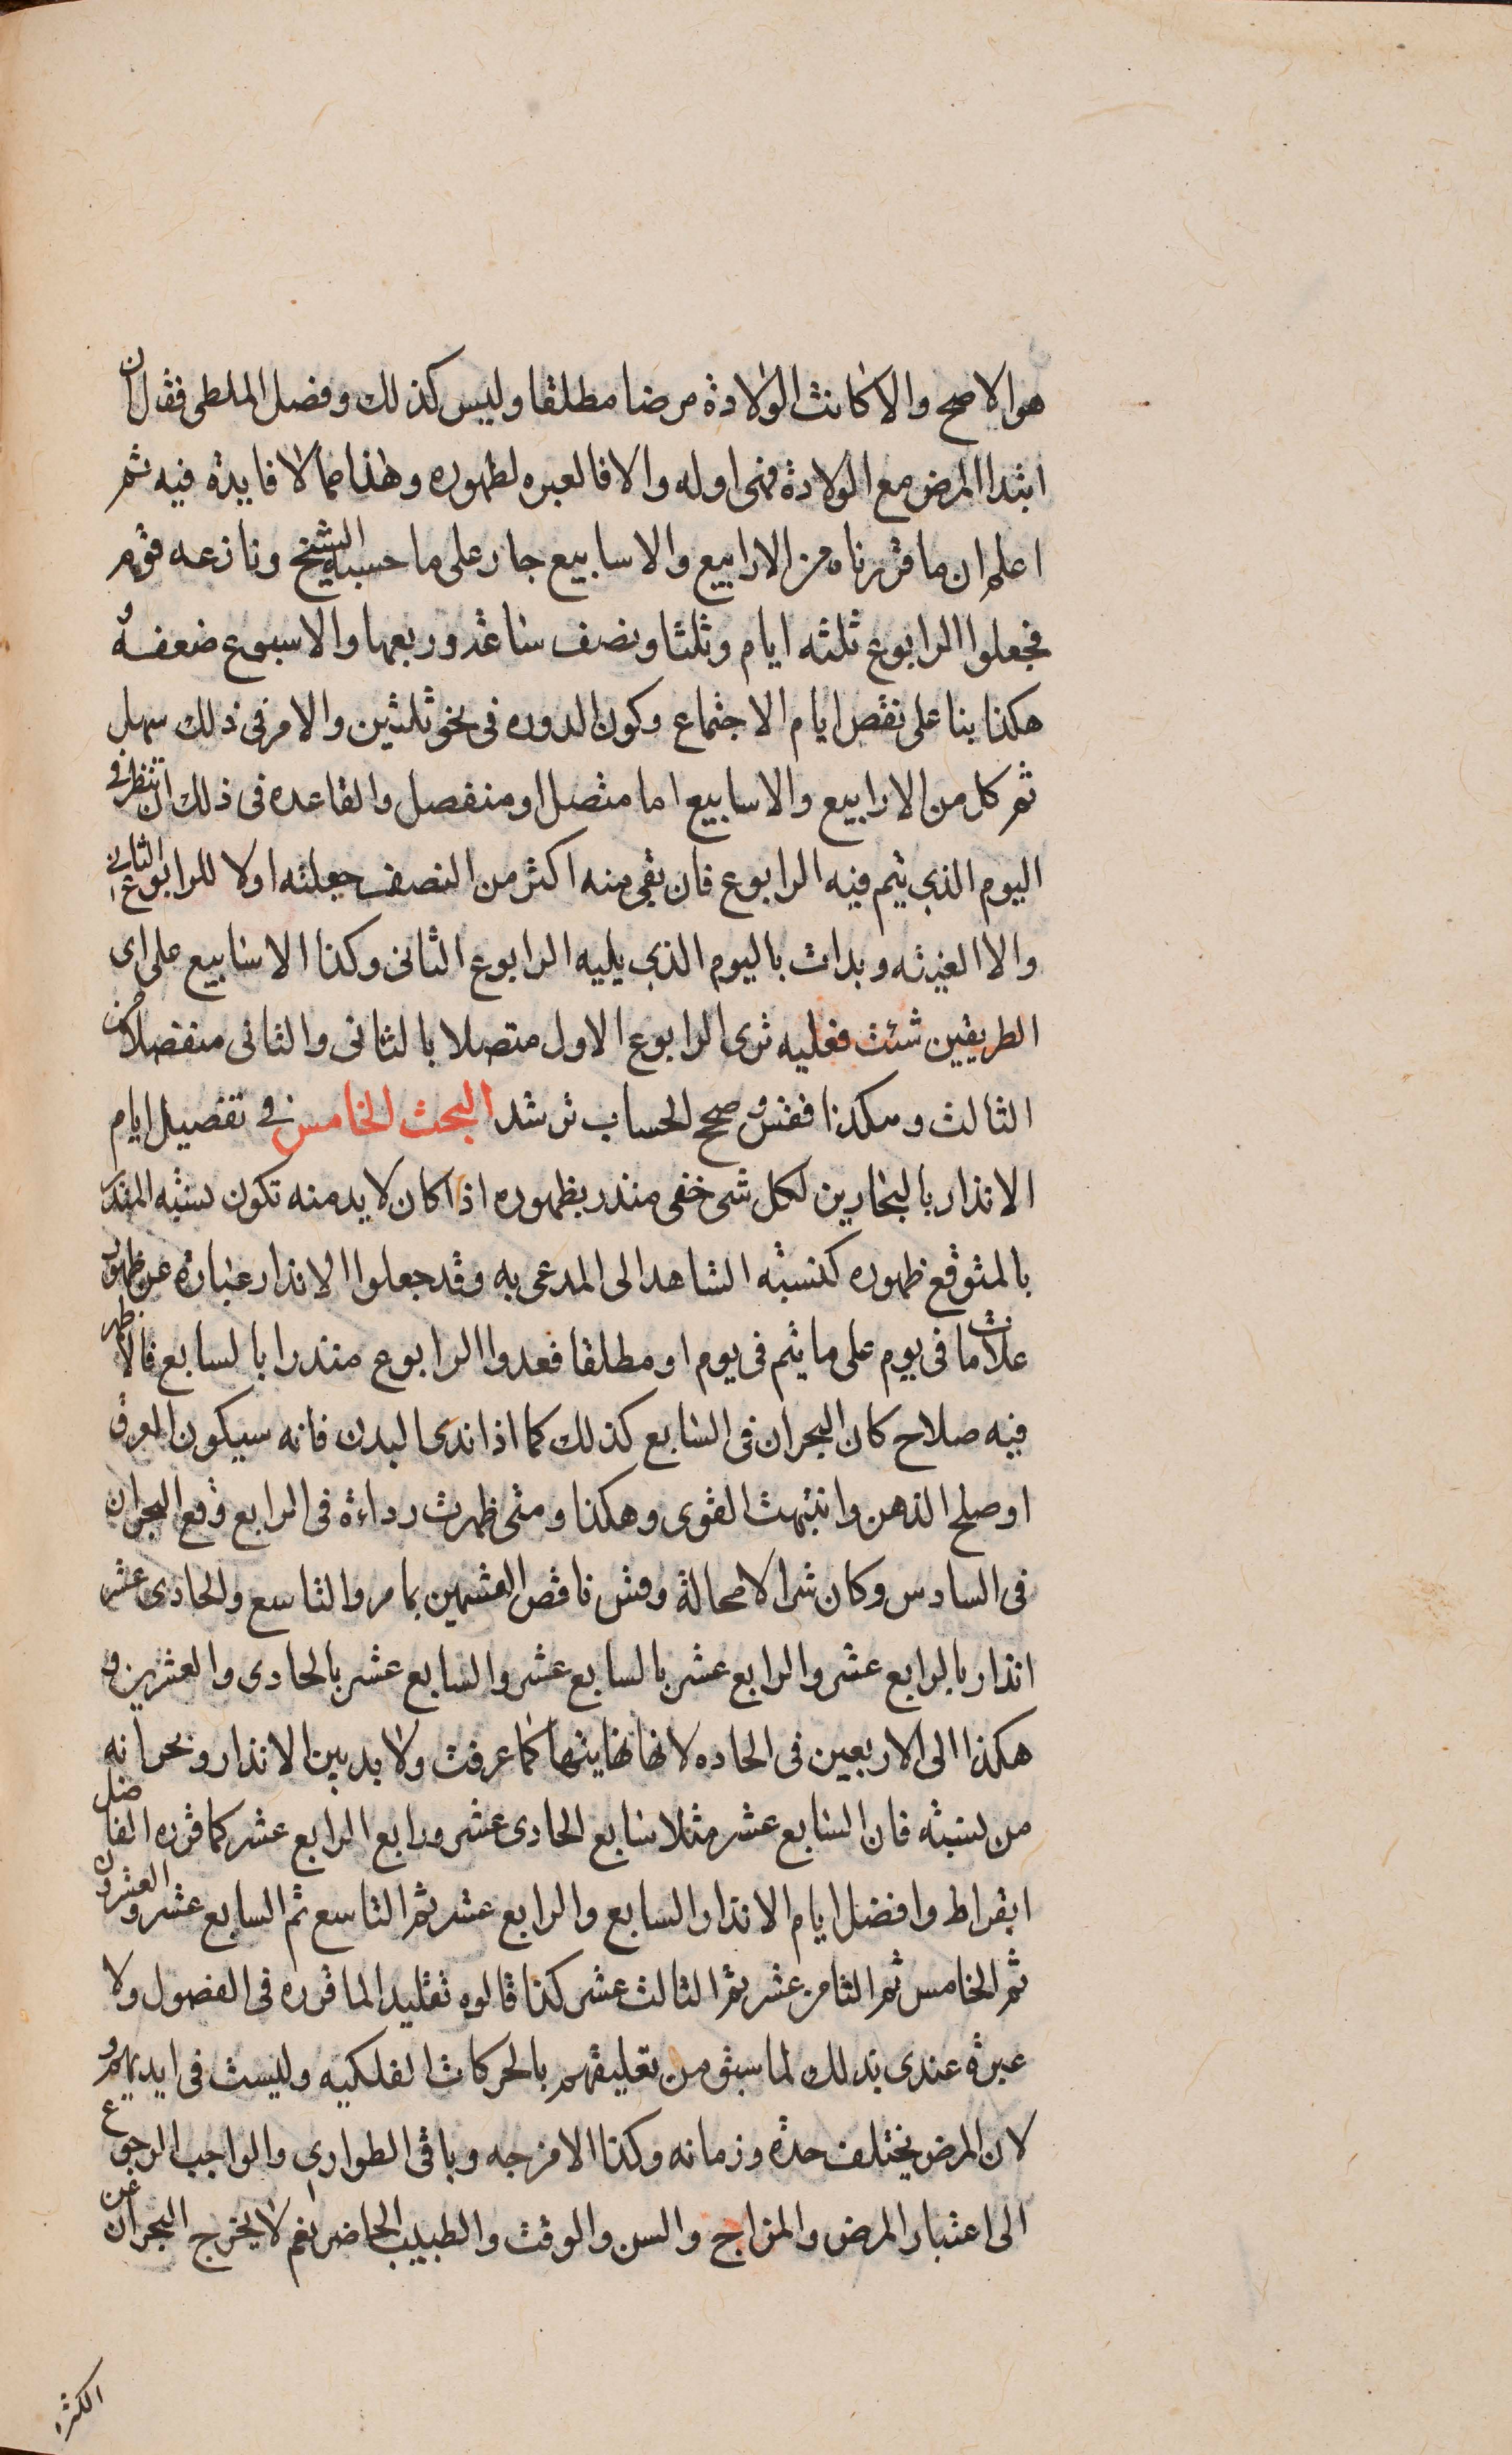 هو الاصح والا كانت الولادة مرضا مطلقا وليس كذلك وفصل الملطى فقال ان
ابتدا المرض مع الولادة فهى اوله والا فالعبره لظهوره وهذا مما لا فايدة فيه ثم
اعلم ان ما قررناه من الارابيع والاسابيع جار على ما حسبه الشيخ ونازعه قوم
فجعلوا الرابوع ثلثه ايام وثلثا ونصف ساعة وربعها والاسبوع ضعفه و
هكذا بنا على نقص ايام الاجتماع وكون الدوره فى نحو ثلثين والامر فى ذلك سهل
ثم كل من الارابيع والاسابيع اما متصل او منفصل والقاعده فى ذلك ان تنظر فى
اليوم الذى يتم فيه الرابوع فان بقى منه اكثر من النصف جعلته اولا للرابوع الثانى
والا الغيته وبدات باليوم الذى يليه الرابوع الثانى وكذا الاسابيع على اى
الطريقين شئت فعليه ترى الرابوع الاول متصلا بالثانى والثانى منفصلا من
الثالث وهكذا فقس وصحح الحساب ترشد البحث الخامس فى تفصيل ايام
الانذار بالبخارين لكل شى خفى منذر بظهوره اذا كان لا بد منه تكون نسبته المنذر
بالمتوقع ظهوره كنسبته الشاهد الى المدعى به وقد جعلوا الانذار عبارة عن ظهور
علامات ما فى يوم على ما يتم فى يوم او مطلقا فعدوا الرابوع منذرا بالسابع فالا ظهر
فيه صلاح كان البحران فى السابع كذلك كما اذا ندى البدن فانه سيكون العرق
او صلح الذهن وانتبهت القوى وهكذا ومتى ظهرت رداءة فى الرابع وقع البحران
فى السادس وكان شرا لا محالة وقس ناقص القسمين بما مر والتاسع والحادى عشر
انذار بالرابع عشر والرابع عشر بالسابع عشر والسابع عشر بالحادى والعشرين و
هكذا الى الاربعين فى الحاده لانها نهايتها كما عرفت ولا بد بين الانذار وبحرانه
من نسبته فان السابع عشر مثلا سابع الحادى عشر ورابع الرابع عشر كما قرره الفاضل
ابقراط وافضل ايام الانذار السابع والرابع عشر ثم التاسع ثم السابع عشر والعشرون
ثم الخامس ثم الثامن عشر ثم الثالث عشر كذا قالوه تقليدا لما قرره فى الفصول ولا
عبرة عندى بذلك لما سبق من تعليقهم بالحركات الفلكيه وليست فى ايديهم و
لان المرض يختلف حدة وزمانه وكذا الامزجه وباقى الطوارى والواجب الرجوع
الى اعتبار المرض والمزاج والسن والوقت والطبيب الحاضر نعم لا يخرج البحران عن